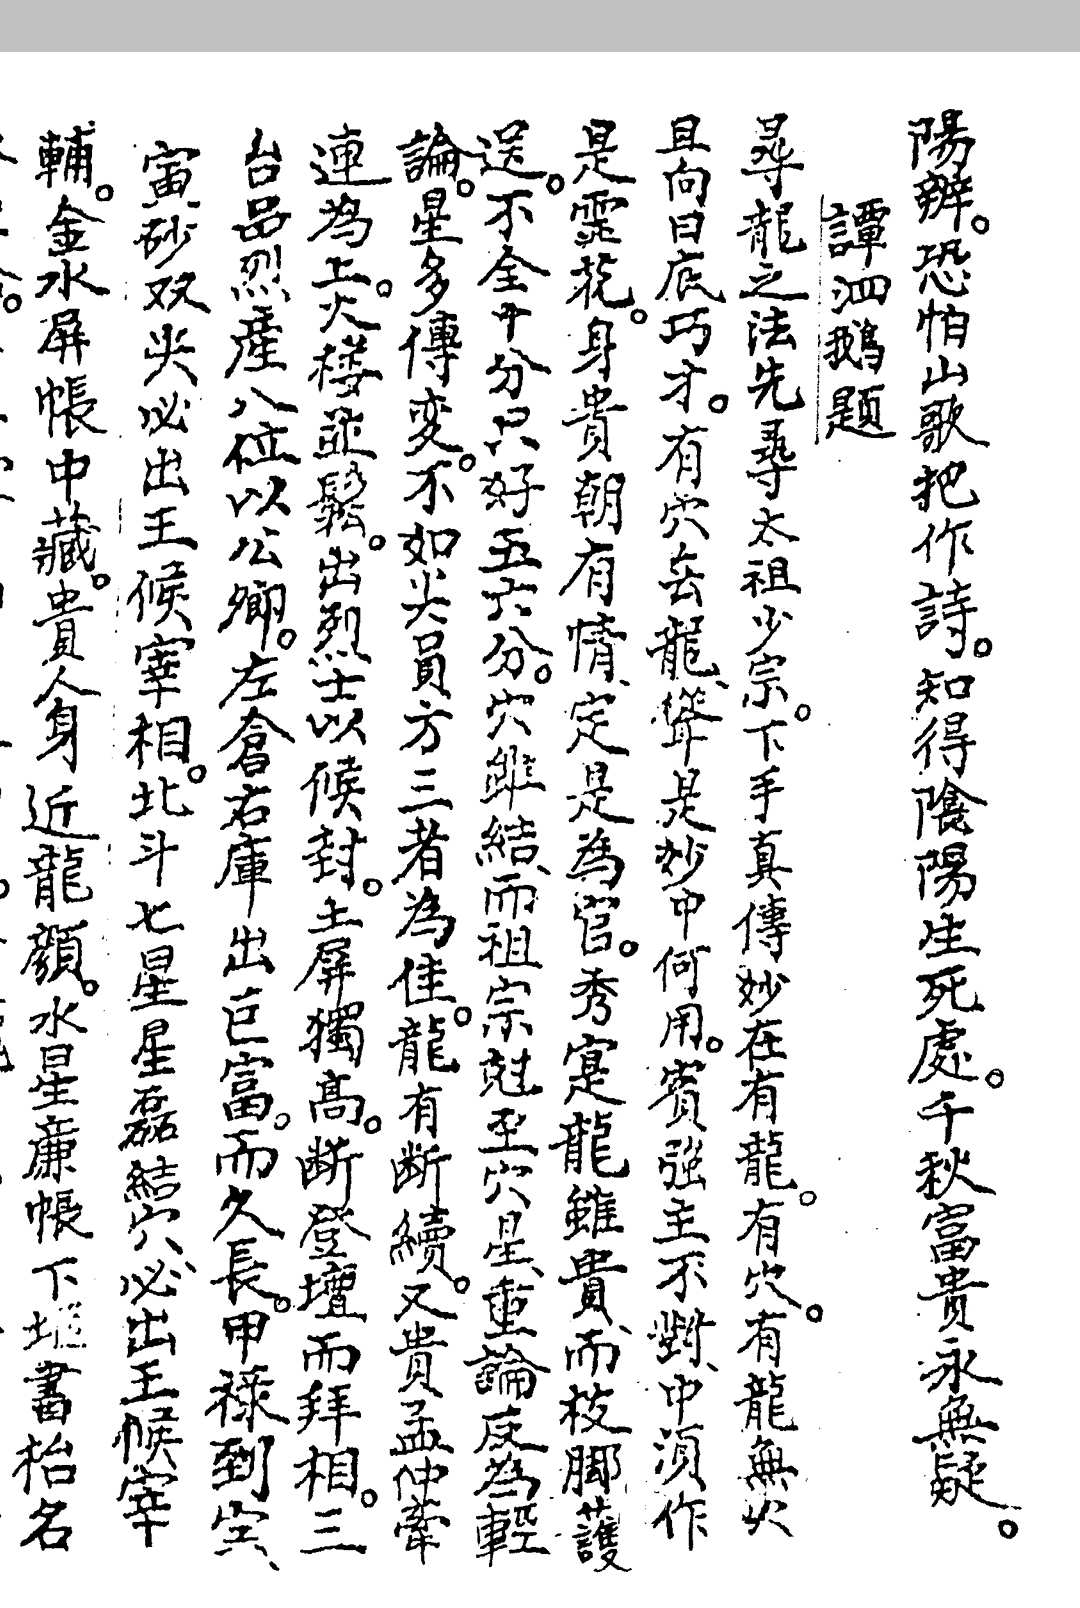 陽辨。恐怕山歌把作詩。知得陰陽生死處。千秋富貴永無疑。
譚泗鵝題
尋龍之法先尋太祖少宗。下手真傳妙在有龍。有穴。有龍無穴
且向日底巧才。有穴去龍、聳是妙中何用。賓強主不對、中須作
是靈花。身貴朝有情、定是為官。秀寔龍雖貴、而枝脚護
送。不全十分只好五六分。穴雖結、而祖宗尅至穴星、重論反為輕
論。星多傳変。不如尖員方三者為佳。龍有断續。又貴孟仲牽
連為上。火楼並鬆。出烈士以候封。土屏獨高。断登壇而拜相。三
台品烈産八位以公卿。左倉右庫出巨富。而久長。甲祿到寅、
寅砂双尖必出王候宰相。北斗七星星磊結穴、必出王候宰
輔。金水屏帳中藏。貴人身近龍顏。水星廉帳下堆書枱名